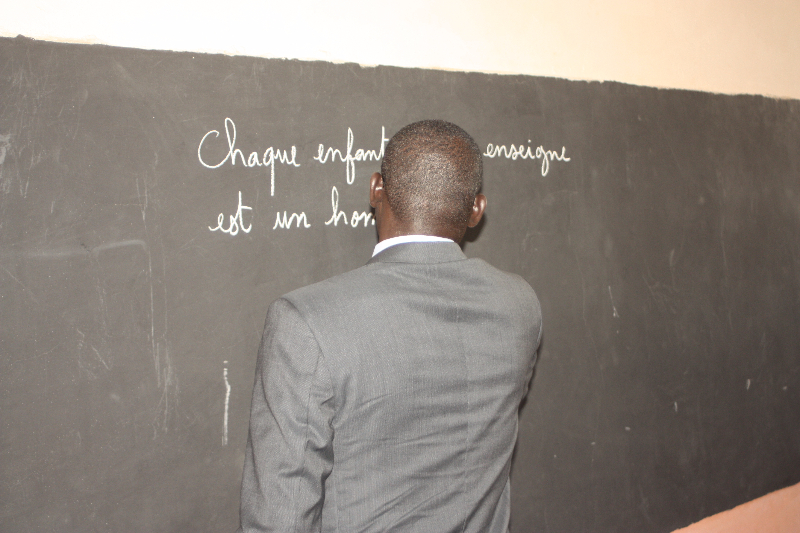 Chaque enfant enseigne
est un hom